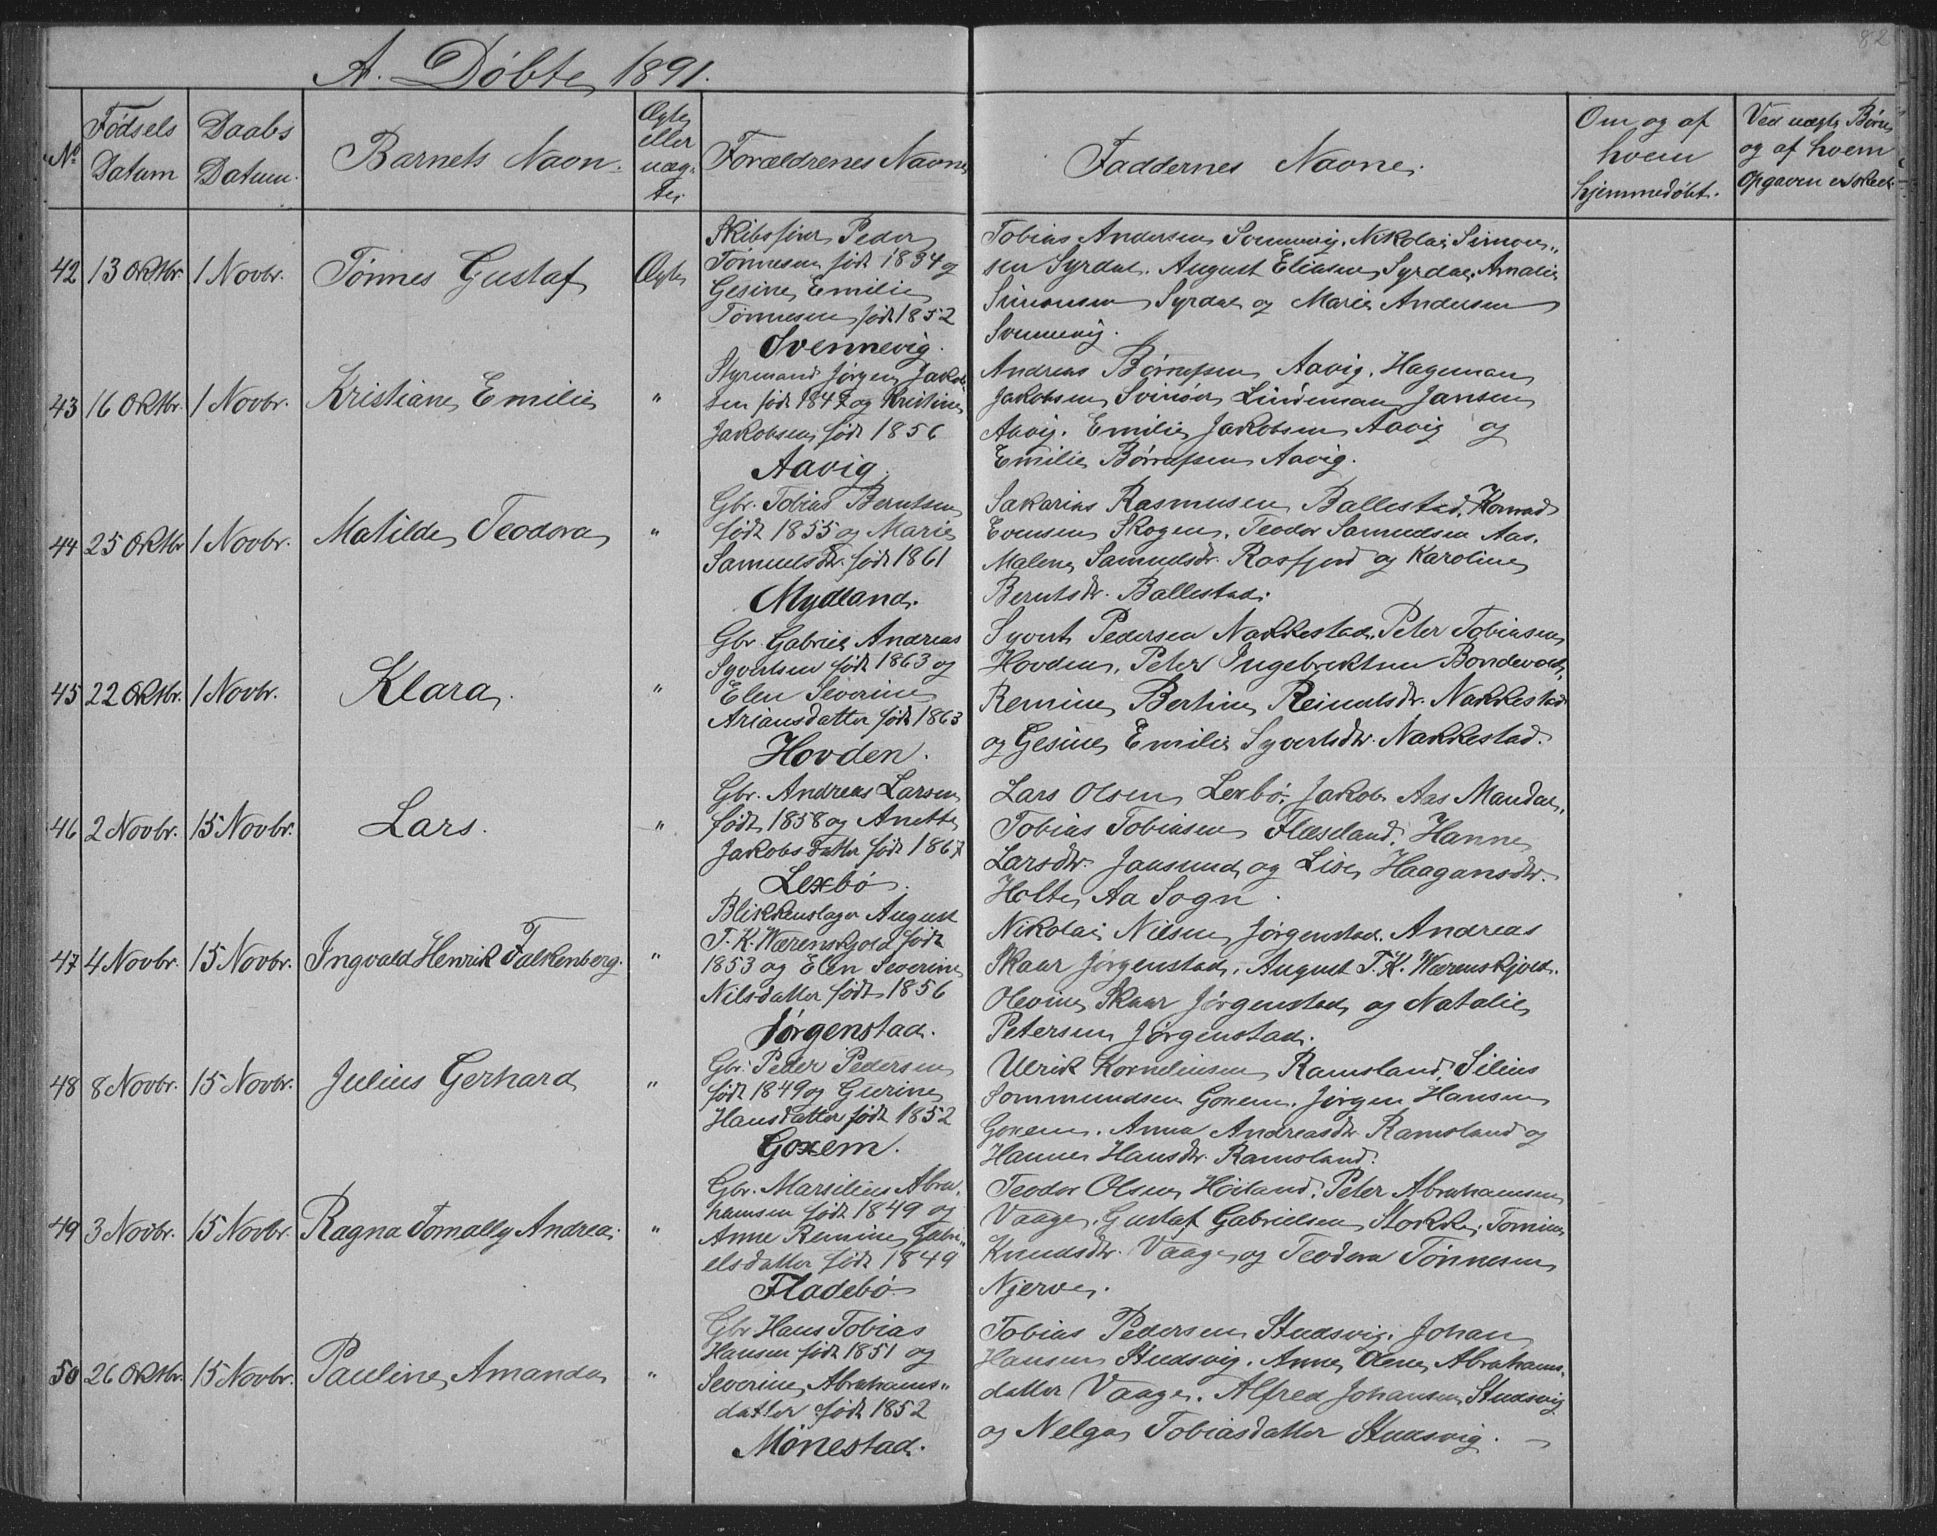 82
A. Døbte, 1891.
No
Fødsels Datum
Daabs Datum.
Barnets Navn.
Ægte eller uæg- te.
Forældrenes Navne
Faddernes Navne.
Om og af hvem hjemmedøbt.
Ved uægte Børn, og af hvem Opgaven er skeet.
42 13 Oktbr. 1 Novbr. Tønnes Gustaf Ægte
Skibsfører Peder
Tønnesen født 1834 og
Gesine Emilie
Tønnesen født 1852
Svennevig.
Tobias Andersen Svennevig, Nikolai Simon-
sen Syrdal. August Eliasen Syrdal, Amalie
Simonsen Syrdal og Marie Andersen
Svennevig.
43 16 Oktbr. 1 Novbr. Kristiane Emilie "
Styrmand Jørgen Jakob-
sen født 1847 og Kristine
Jakobsen født 1856
Aavig.
Andreas Børresen Aavig. Hageman
Jakobsen Svinør Lindeman Jansen
Aavig. Emilie Jakobsen Aavig og
Emilie Børresen Aavig.
44 25 Oktbr 1 Novbr. Matilde Teodora "
Gbr. Tobias Berntsen
født 1855 og Marie
Samuelsdtr. født 1861
Mydland.
Sakarias Rasmusen Ballestad, Konrad
Evensen Skogen. Teodor Samuelsen Aas.
Malene Samuelsdtr. Rosfjord og Karoline
Berntsdtr. Ballestad.
45 22 Oktbr. 1 Novbr. Klara. "
Gbr. Gabriel Andreas
Syvertsen født 1863 og
Elen Severine
Ariansdatter født 1863
Hovden.
Syvert Pedersen Nakkestad, Peter Tobiasen
Hovden, Peter Ingebrektsen Bondevold,
Remine Bertine Reinertsdtr. Nakkestad
og Gesine Emilie Syvertsdtr. Nakkestad.
46 2 Novbr. 15 Novbr. Lars. "
Gbr. Andreas Larsen
født 1858 og Anette
Jakobsdatter født 1867
Lexbø.
Lars Olsen Lexbø. Jakob Aas Mandal.
Tobias Tobiasen Flæseland. Hanne
Larsdtr. Jaasund og Lise Haagansdtr.
Holte Aa Sogn.
47 4 Novbr. 15 Novbr. Ingvald Henrik Falkenberg. "
Blikkenslager August
T. K. Wærenskjold født
1853 og Elen Severine
Nilsdatter født 1856
Jørgenstad.
Nikolai Nilsen Jørgenstad. Andreas
Skaar Jørgenstad. August T. K. Wærenskjold.
Olevine Skaar Jørgenstad og Natalie
Petersen Jørgenstad.
48 8 Novbr. 15 Novbr. Julius Gerhard "
Gbr. Peder Pedersen
født 1849 og Gurine
Hansdatter født 1852
Goxem.
Ulrik Kornelius­sen Ramsland, Silius
Sommundsen Goxem. Jørgen Hansen
Goxem. Anna Andreasdtr. Ramsland og
Hanne Hansdtr. Ramsland.
49 3 Novbr. 15 Novbr. Ragna Tomally Andrea. "
Gbr. Marsilius Abra-
hamsen født 1849 og
Anne Remine Gabri-
elsdatter født 1849
Fladebø
Teodor Olsen Høiland. Peter Abrahamsen
Vaage. Gustaf Gabrielsen Stokke. Tomine
Knudsdtr. Vaage og Teodora Tønnesen
Njerve.
50 26 Oktbr. 15 Novbr. Pauline Amanda "
Gbr Hans Tobias
Hansen født 1851 og
Severine Abrahams-
datter født 1852
Mønestad.
Tobias Pedersen Studsvig. Johan
Hansen Studsvig. Anne Olene Abrahams-
datter Vaage. Alfred Johansen Studsvig
og Nelga Tobiasdatter Studsvig.